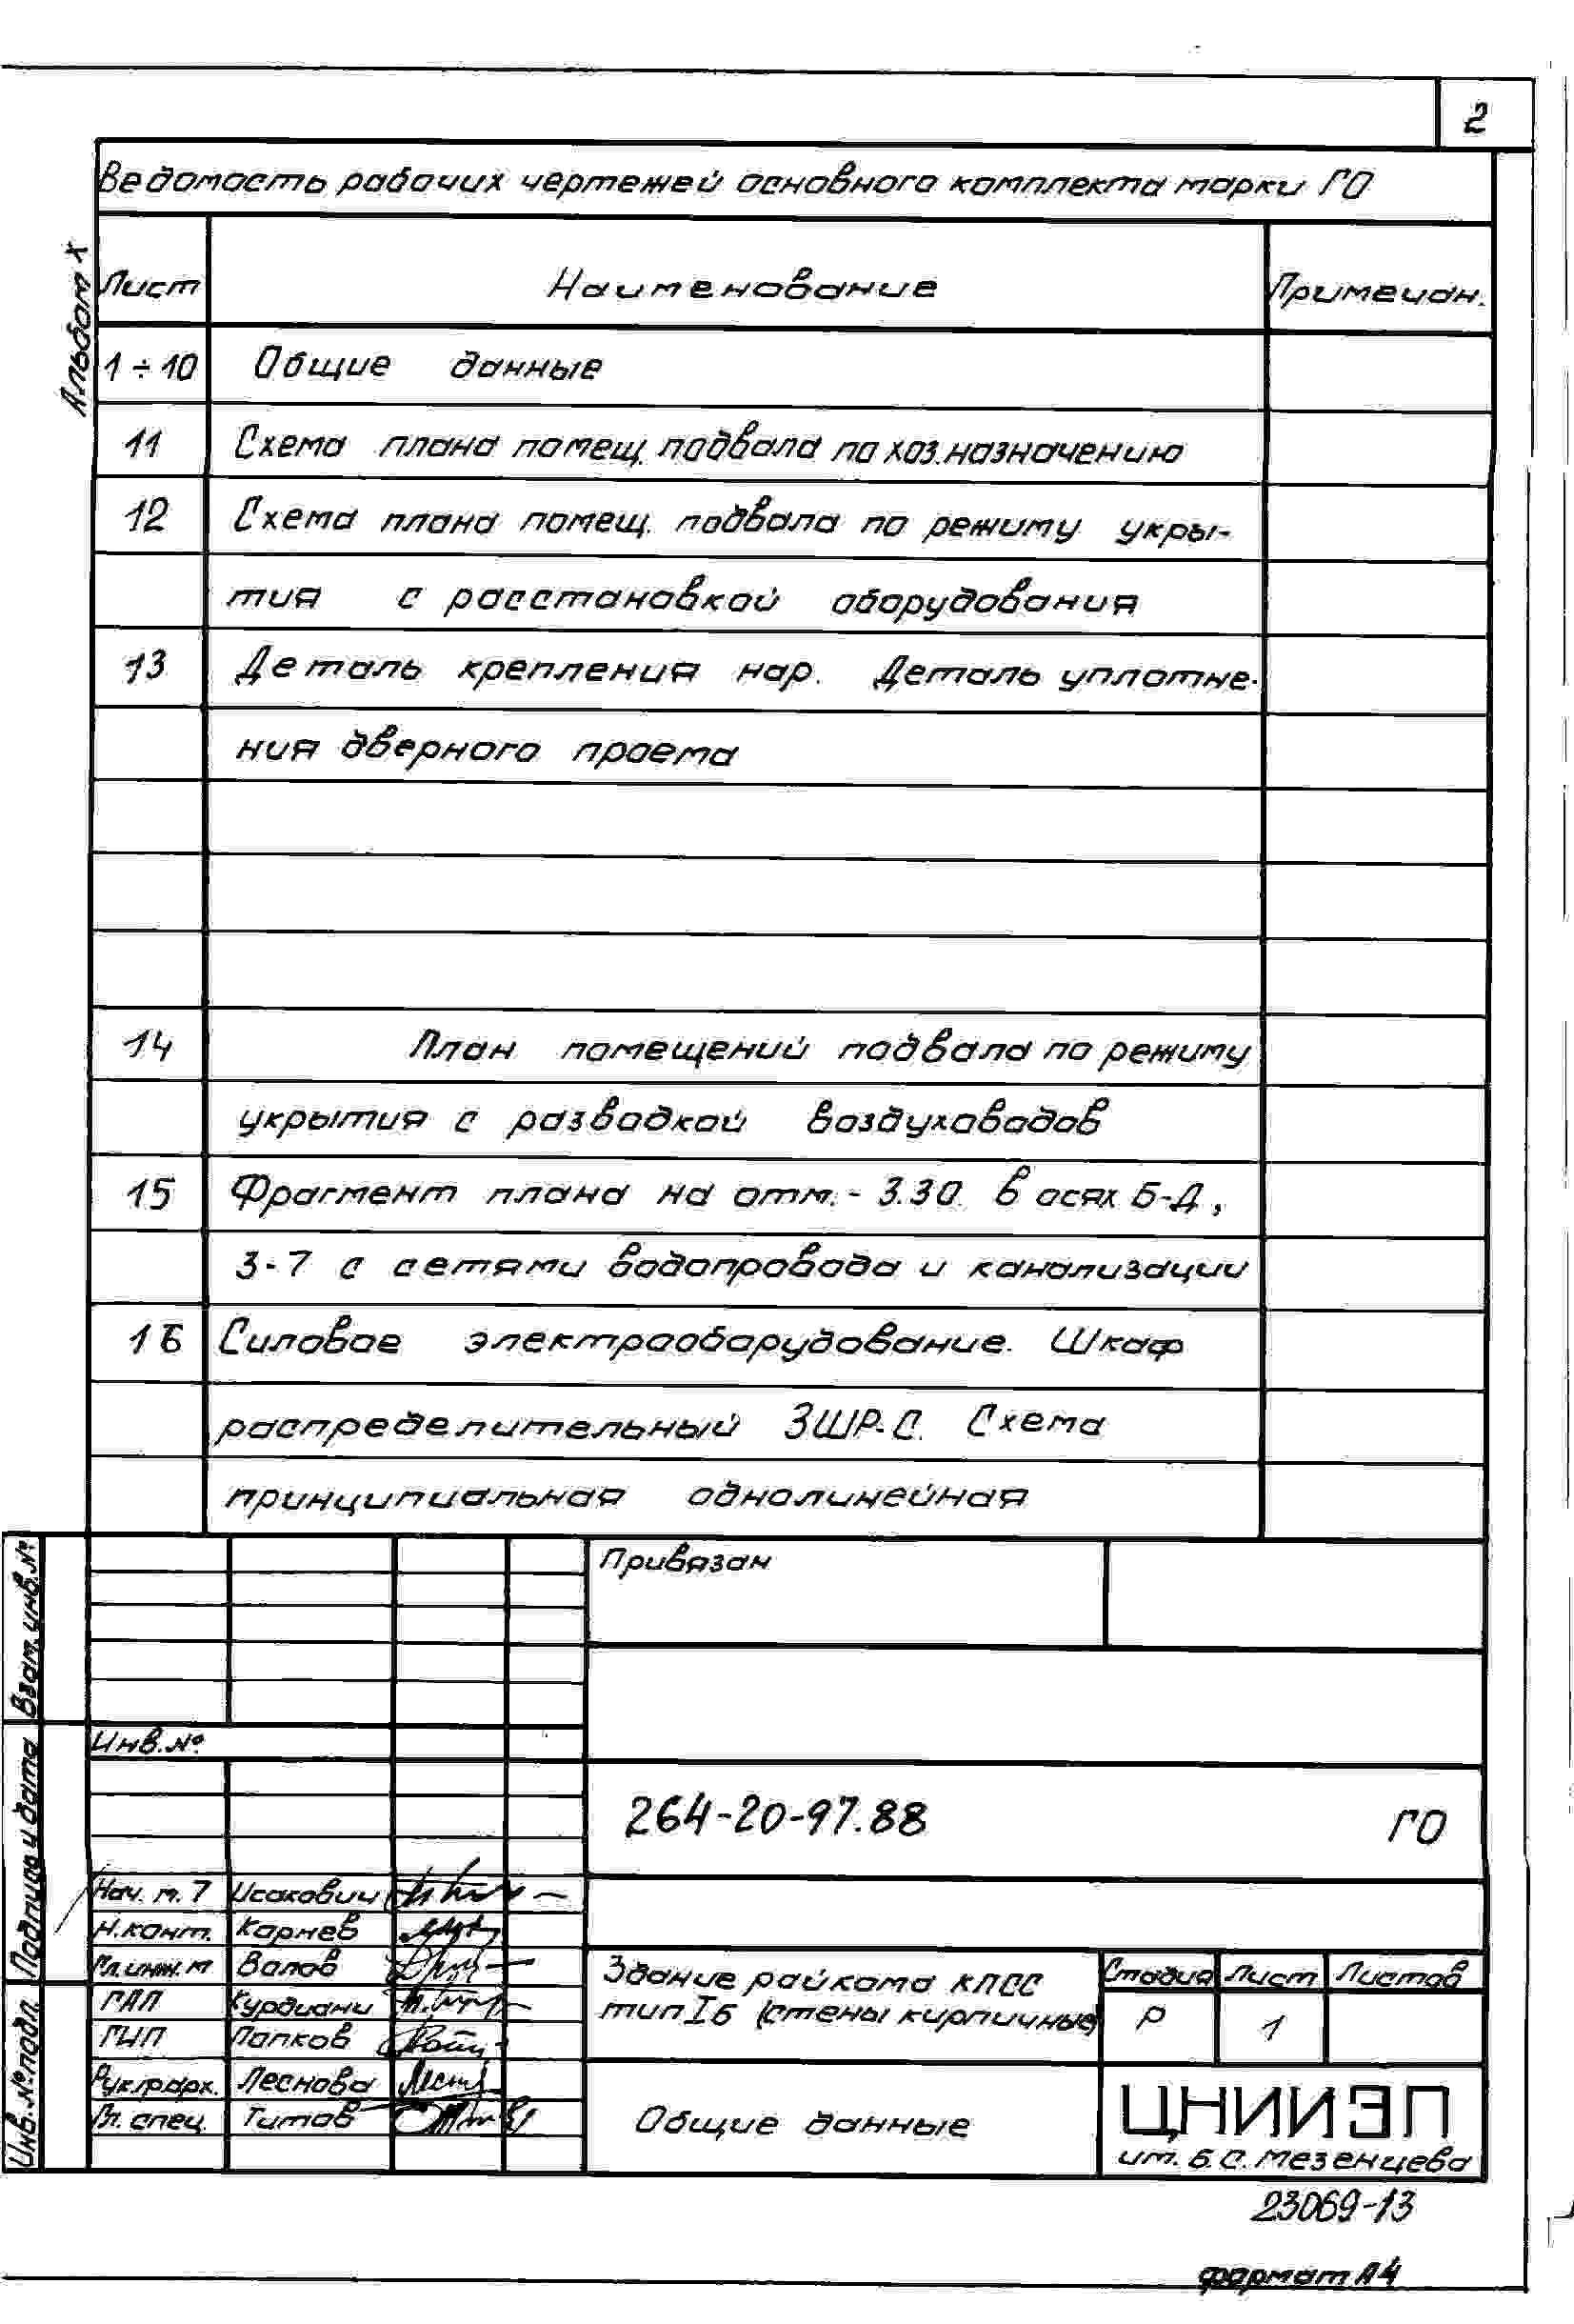 2
Ведомость рабочих чертежей основного комплекта марки ГО
Альбом X
Лист Наименование Примечан.
1÷10 Общие данные
11 Схема плана помещ. подвала по хоз.назначению
12 Схема плана помещ. подвала по режиму укры-
тия с расстановкой оборудования
13 Деталь крепления нар. Деталь уплотне-
ния дверного проема
14 План помещений подвала по режиму
укрытия с разводкой воздуховодов
15 Фрагмент плана на отм. - 3.30. в осях Б-Д,
3-7 с сетями водопровода и канализации
16 Силовое электрооборудование. Шкаф
распределительный 3ШР-С. Схема
принципиальная однолинейная
Привязан
Взам. инв. №
Инв. №
Подпись и дата
264-20-97.88 ГО
Нач. м. 7 Исакович
Н. конт. Корнев
Гл. инж. м Валов
ГАП Курдиани
ГИП Папков
Рук. гр. арх. Леснова
Гл. спец. Титов
Инв. № подл.
Здание райкома КПСС
тип Iб (стены кирпичные)
Стадия Лист Листов
Р 1
Общие данные
ЦНИИЭП
им. Б.С. Мезенцева
23069-13
формат А4